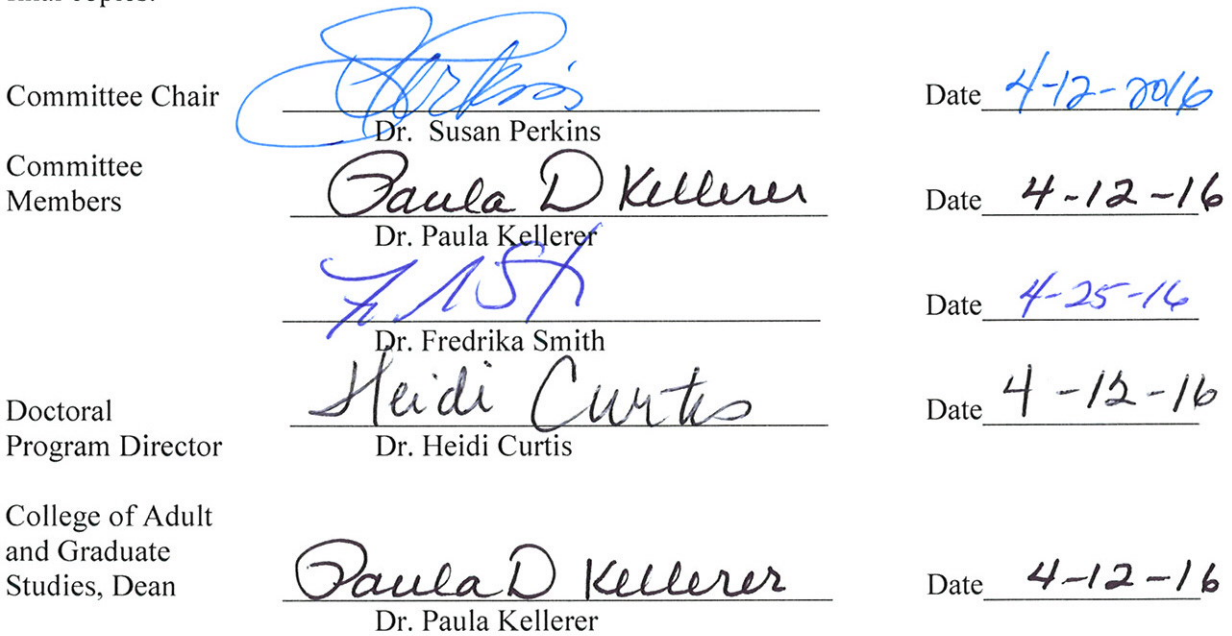 final copies.
Committee Chair Perkins Date 4-12-2016
Dr. Susan Perkins
Committee
Members Paula D Kellerer Date 4-12-16
Dr. Paula Kellerer
Date 4-25-16
Dr. Fredrika Smith
Doctoral Heidi Curtis Date 4-12-16
Program Director Dr. Heidi Curtis
College of Adult
and Graduate
Studies, Dean Paula D Kellerer Date 4-12-16
Dr. Paula Kellerer